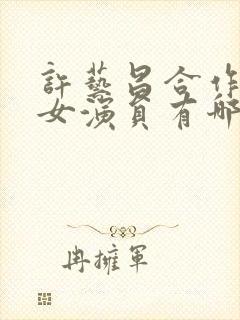 許藝昌合作
女演員有哪
冉擁軍